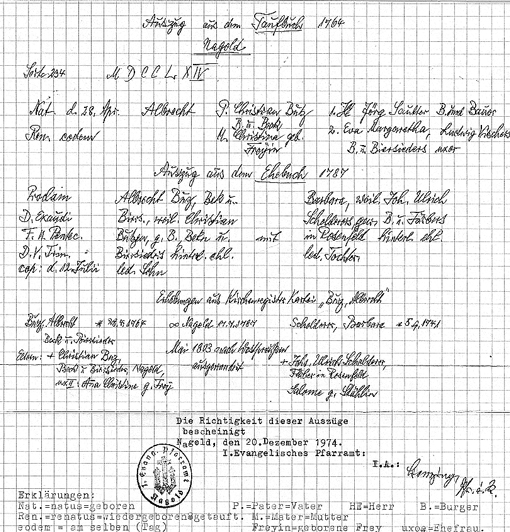 Auszug aus dem Taufbuch 1764
Nagold
Seite 234 M D C C L X IV
Nat. d. 28. Apr. Albrecht P. Christian Buz 1. HE Jörg Sautter B. und Bauer
Ren. eodem B. u. Beck 2. Eva Margaretha, Ludwig
M. Christine geb. B. u. Biersieders uxor
Freyin
Auszug aus dem Ehebuch 1787
Proclam Albrecht Buz, Bek u. Barbara, weil. Joh. Ulrich
D. Exaudi Biers., weil. Christian Scholderers, gew. B. u. Färbers
F. II. Pentec. Buzen, g. B. Bekn u. mit in Rosenfeld hinterl. ehl.
D. V. Trin. Biersieders hinterl. ehl. led. Tochter
cop: d. 12. Julii led. Sohn
Erhebungen aus Kirchenregister Kartei „Buz, Albrecht"
Buz, Albrecht * 28.4.1764 ∞ Nagold Scholderer, Barbara *
Beck u. Biersieder Mai 1803 nach Westpreußen + Joh. Ulrich Scholderer,
Eltern: + Christian Buz, ausgewandert Färber in Rosenfeld
Beck u. Biersieder, Nagold, Salome g.
ux II: Anna Christine g. Frey
Die Richtigkeit dieser Auszüge
bescheinigt
Nagold, den 20.Dezember 1974.
I.Evangelisches Pfarramt:
I.A.:
I. Evang. Pfarramt
Nagold
Erklärungen:
Nat.=natus=geboren P.=Pater=Vater HE=Herr B.=Burger
Ren.=renatus=wiedergeboren=getauft. M.=Mater=Mutter
eodem = am selben (Tag) Freyin=geborene Frey uxor=Ehefrau.